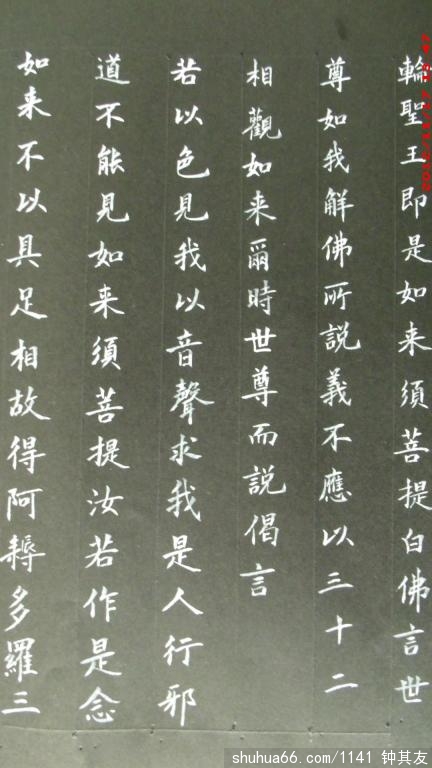 輪聖王即是如来須菩提白佛言世
尊如我解佛所説義不應以三十二
相觀如来爾時世尊而説偈言
若以色見我以音聲求我是人行邪
道不能見如来須菩提汝若作是念
如来不以具足相故得阿耨多羅三
shuhua66.com/1141 钟其友